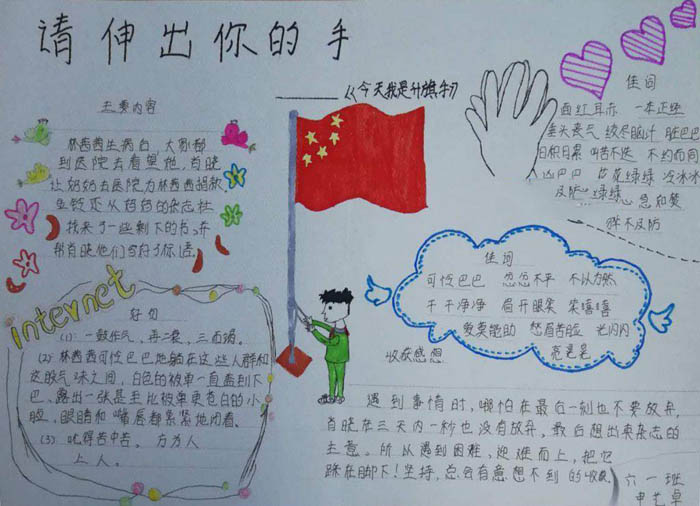 请伸出你的手
《今天我是升旗手》
主要内容
林茜茜生病后，大家都
到医院去看望她，肖晓
让妈妈去医院为林茜茜捐款
找来了一些剩下的书，并
internet
好句
(1) 一鼓作气，再二衰，三而竭。
(2) 林茜茜可怜巴巴地躺在这些人群和
这股气味之间，白色的被单一直盖到下
巴，露出一张是至比被单更苍白的小
脸，眼睛和嘴唇都紧紧地闭着。
(3) 吃得苦中苦。方为人
上人。
佳词
面红耳赤 一本正经
垂头丧气 绞尽脑汁 眼巴巴
日积月累 不约而同
冷冰冰
猝不及防
佳词
可怜巴巴 忿忿不平 不以为然
干干净净 眉开眼笑 笑嘻嘻
爱莫能助 愁眉苦脸 光闪闪
亮晃晃
收获感想
遇到事情时，哪怕在最后一刻也不要放弃，
肖晓在三天内一秒也没有放弃，最后想出卖杂志的
主意。所以遇到困难，迎难而上，把它
踩在脚下！坚持，总会有意想不到的收获。
六一班
申艺卓